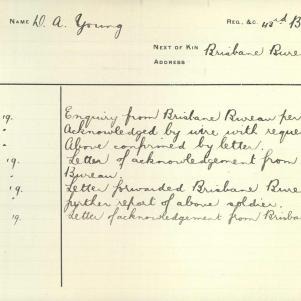 NAME W. A. Young REG. &C. 42nd B
NEXT OF KIN Brisbane Bure
ADDRESS
19. Enquiry from Brisbane Bureau per
" Acknowledged by wire with reque
" Above confirmed by letter.
19. Letter of acknowledgement from
" Bureau.
19. Letter forwarded Brisbane Bure
" further report of above soldier.
19. Letter of acknowledgement from Brisba